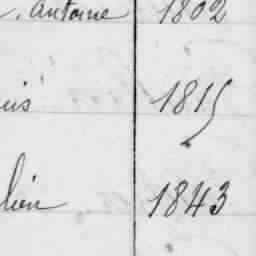 Antoine 1802
uis 1815
lien 1843